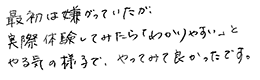 最初は嫌がっていたが、
実際体験してみたら「わかりやすい」と
やる気の様子で、やってみて良かったです。